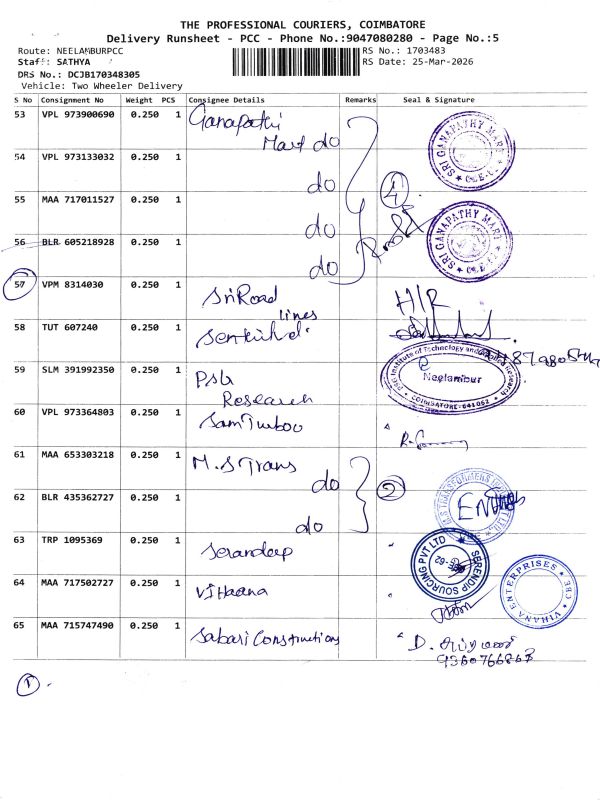 THE PROFESSIONAL COURIERS, COIMBATORE
Delivery Runsheet - PCC - Phone No.:9047080280 - Page No.:5
Route: NEELAMBURPCC
RS No.: 1703483
Staff: SATHYA
RS Date: 25-Mar-2026
DRS No.: DCJB170348305
Vehicle: Two Wheeler Delivery
S No Consignment No Weight PCS Consignee Details Remarks Seal & Signature
53 VPL 973900690 0.250 1 Ganapathi
Mart do
SRI GANAPATHY MART
54 VPL 973133032 0.250 1 do
4
55 MAA 717011527 0.250 1 do
SRI GANAPATHY MART
56 BLR 605218928 0.250 1 do
57 VPM 8314030 0.250 1 Sri Road
lines
H/R
58 TUT 607240 0.250 1
59 SLM 391992350 0.250 1 PSG
Research
PSG Institute of Technology and Applied Research
Neelambur
COIMBATORE-641062
60 VPL 973364803 0.250 1 Sam Turboo
61 MAA 653303218 0.250 1 M.S Trans
do
2
62 BLR 435362727 0.250 1 do
63 TRP 1095369 0.250 1 Serandeep
SERENDIP SOURCING PVT LTD
64 MAA 717502727 0.250 1 Vihaana
VIHANA ENTERPRISES
CBE
65 MAA 715747490 0.250 1 Sabari Constructions
D.
9360766863
1